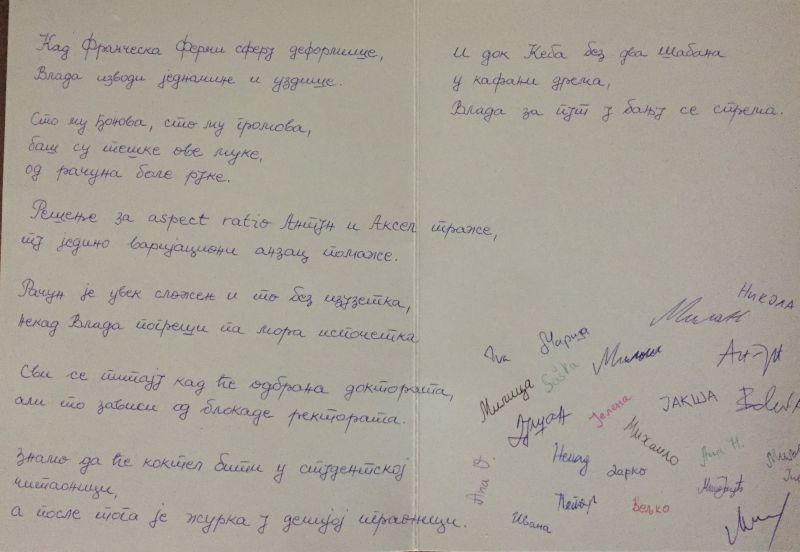 Кад Франческа Ферми сферу деформише,
Влада изводи једначине и уздише.
Сто му бонова, сто му громова,
баш су тешке ове муке,
од рачуна боле руке.
Решење за aspect ratio Антун и Аксел траже,
ту једино варијациони анзац помаже.
Рачун је увек сложен и то без изузетка,
некад Влада погреши па мора испочетка
Сви се питају кад ће одбрана доктората,
али то зависи од блокаде ректората.
Знамо да ће коктел бити у студентској
читаоници,
а после тога је журка у дечијој играоници.
И док Кеба без два шабана
у кафани дрема,
Влада за пут у бању се спрема.
НИКОЛА
Милан
Марија
Iva
Милош
Антун
Saška
Милица
Јелена
ЈАКША
Душан
Михаило
Ana H.
Ненад
Дарко
Ana
Петар
Вељко
Ивана